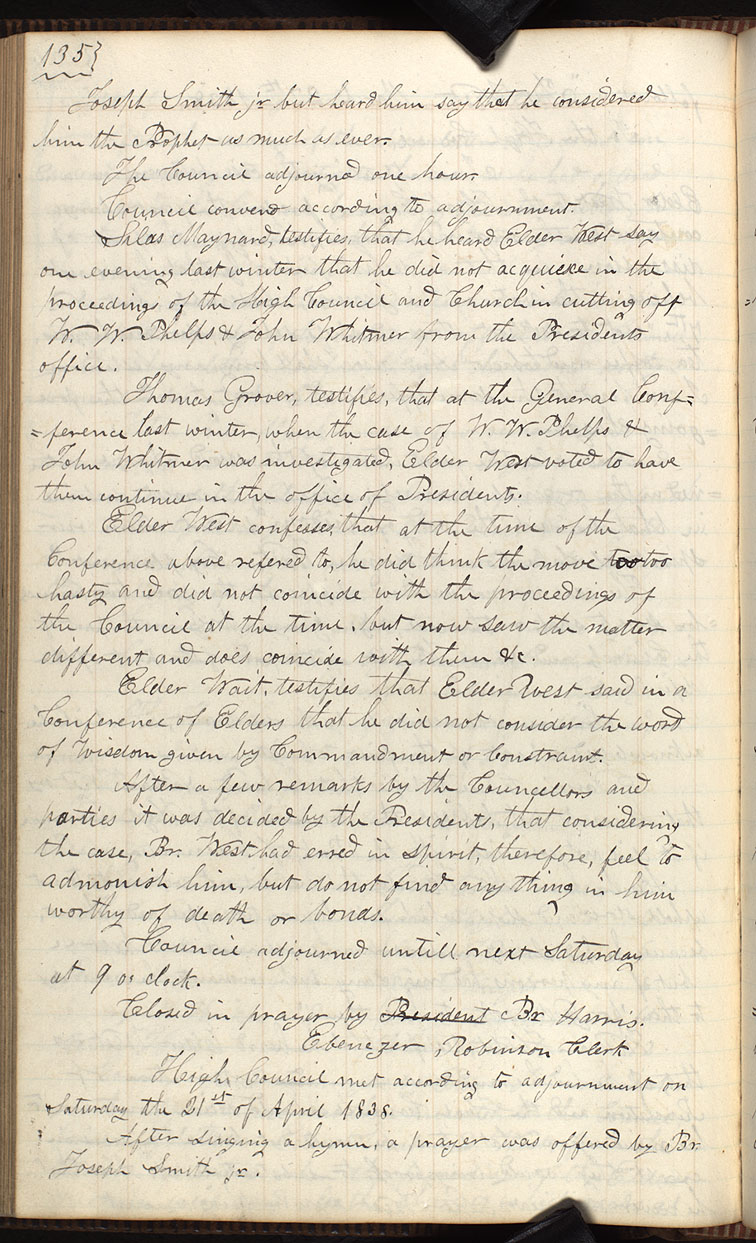 135}
Joseph Smith jr but heard him say that he considered
him the Prophet as much as ever.
The Council adjourned one hour.
Council convend according to adjournment.
Silas Maynard, testifies, that he heard Elder West say
one evening last winter that he did not acquicke in the
proceedings of the High Council and Church in cutting off
W. W. Phelps & John Whitmer from the Presidents
office.
Thomas Grover, testifies, that at the General Conf=
=ference last winter, when the case of W. W. Phelps &
John Whitmer was investigated, Elder West voted to have
them continue in the office of Presidents.
Elder West confesses, that at the time of the
Conference above refered to, he did think the move too too
hasty and did not coincide with the proceedings of
the Council at the time, but now saw the matter
different and does coincide with them &c.
Elder Wait, testifies that Elder West said in a
Conference of Elders that he did not consider the word
of Wisdom given by Commandment or Constraint.
After a few remarks by the Councellors and
parties it was decided by the Presidents, that considering
the case, Br. West had erred in spirit, therefore, feel to
admonish him, but do not find any thing in him
worthy of death or bonds.
Council adjourned untill next Saturday
at 9 o, clock.
Closed in prayer by President Br Harris.
Ebenezer Robinson Clerk
High Council met according to adjournment on
Saturday the 21st of April 1838.
After singing a hymn, a prayer was offered by Br
Joseph Smith jr.